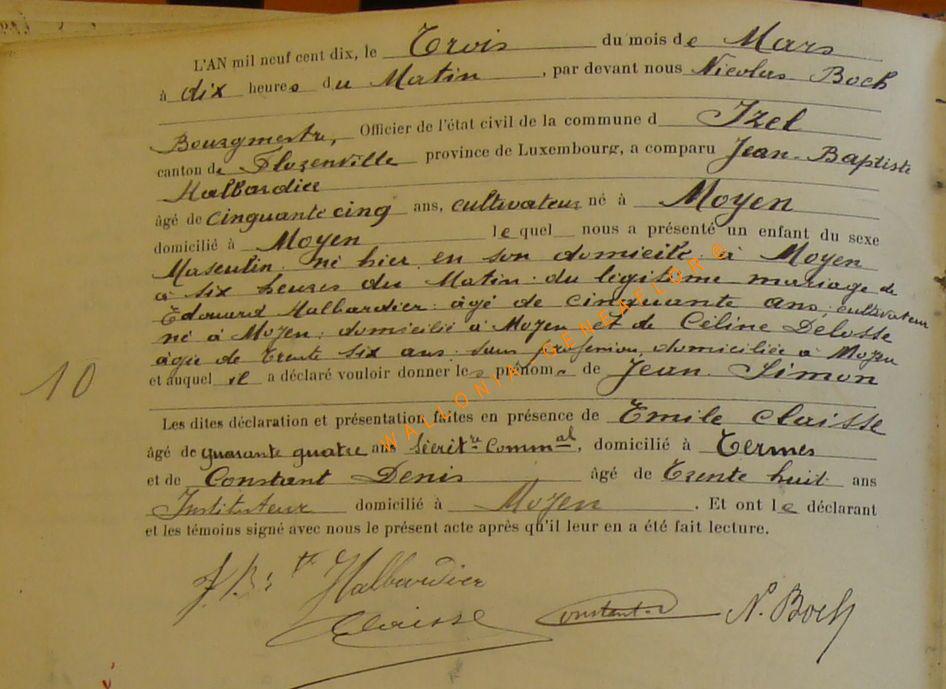 L'AN mil neuf cent dix, le Trois du mois de Mars
à dix heures du Matin, par devant nous Nicolas Boch
Bourgmestre, Officier de l'état civil de la commune d Izel
canton de Florenville province de Luxembourg, a comparu Jean-Baptiste
Halbardier
âgé de cinquante cinq ans, cultivateur né à Moyen
domicilié à Moyen lequel nous a présenté un enfant du sexe
Masculin né hier en son domicile à Moyen
à six heures du Matin du légitime mariage de
Edouard Halbardier âgé de cinquante ans, cultivateur
né à Moyen, domicilié à Moyen et de Céline Delosse
âgée de trente six ans sans profession, domiciliée à Moyen
10
et auquel il a déclaré vouloir donner les prénoms de Jean Simon
Les dites déclaration et présentation faites en présence de Emile Claisse
âgé de quarante quatre ans Secrétre Commal, domicilié à Termes
et de Constant Denis âgé de Trente huit ans
Instituteur domicilié à Moyen. Et ont le déclarant
et les témoins signé avec nous le présent acte après qu'il leur en a été fait lecture.
J. Bte Halbardier
Claisse Constant. D N. Boch
WALLONIA GENEAFLOR ®